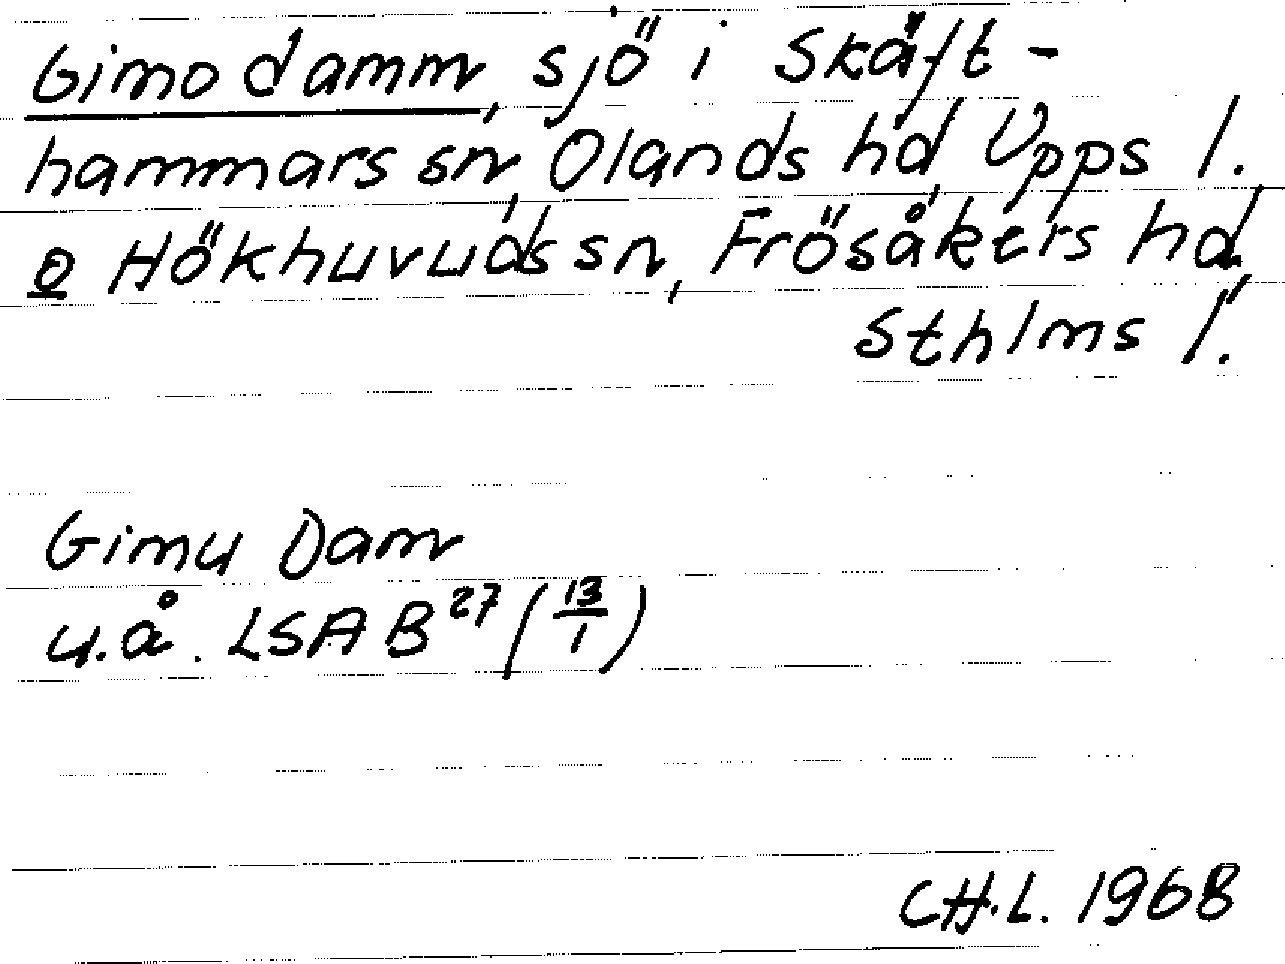 Gimo damm, sjö i Skäft-
hammars sn, Olands hd, Upps l.
o Hökhuvuds sn, Frösåkers hd,
Sthlms l.
Gimu Dam
u.å. LSA B27 (13/1)
CH.L. 1968